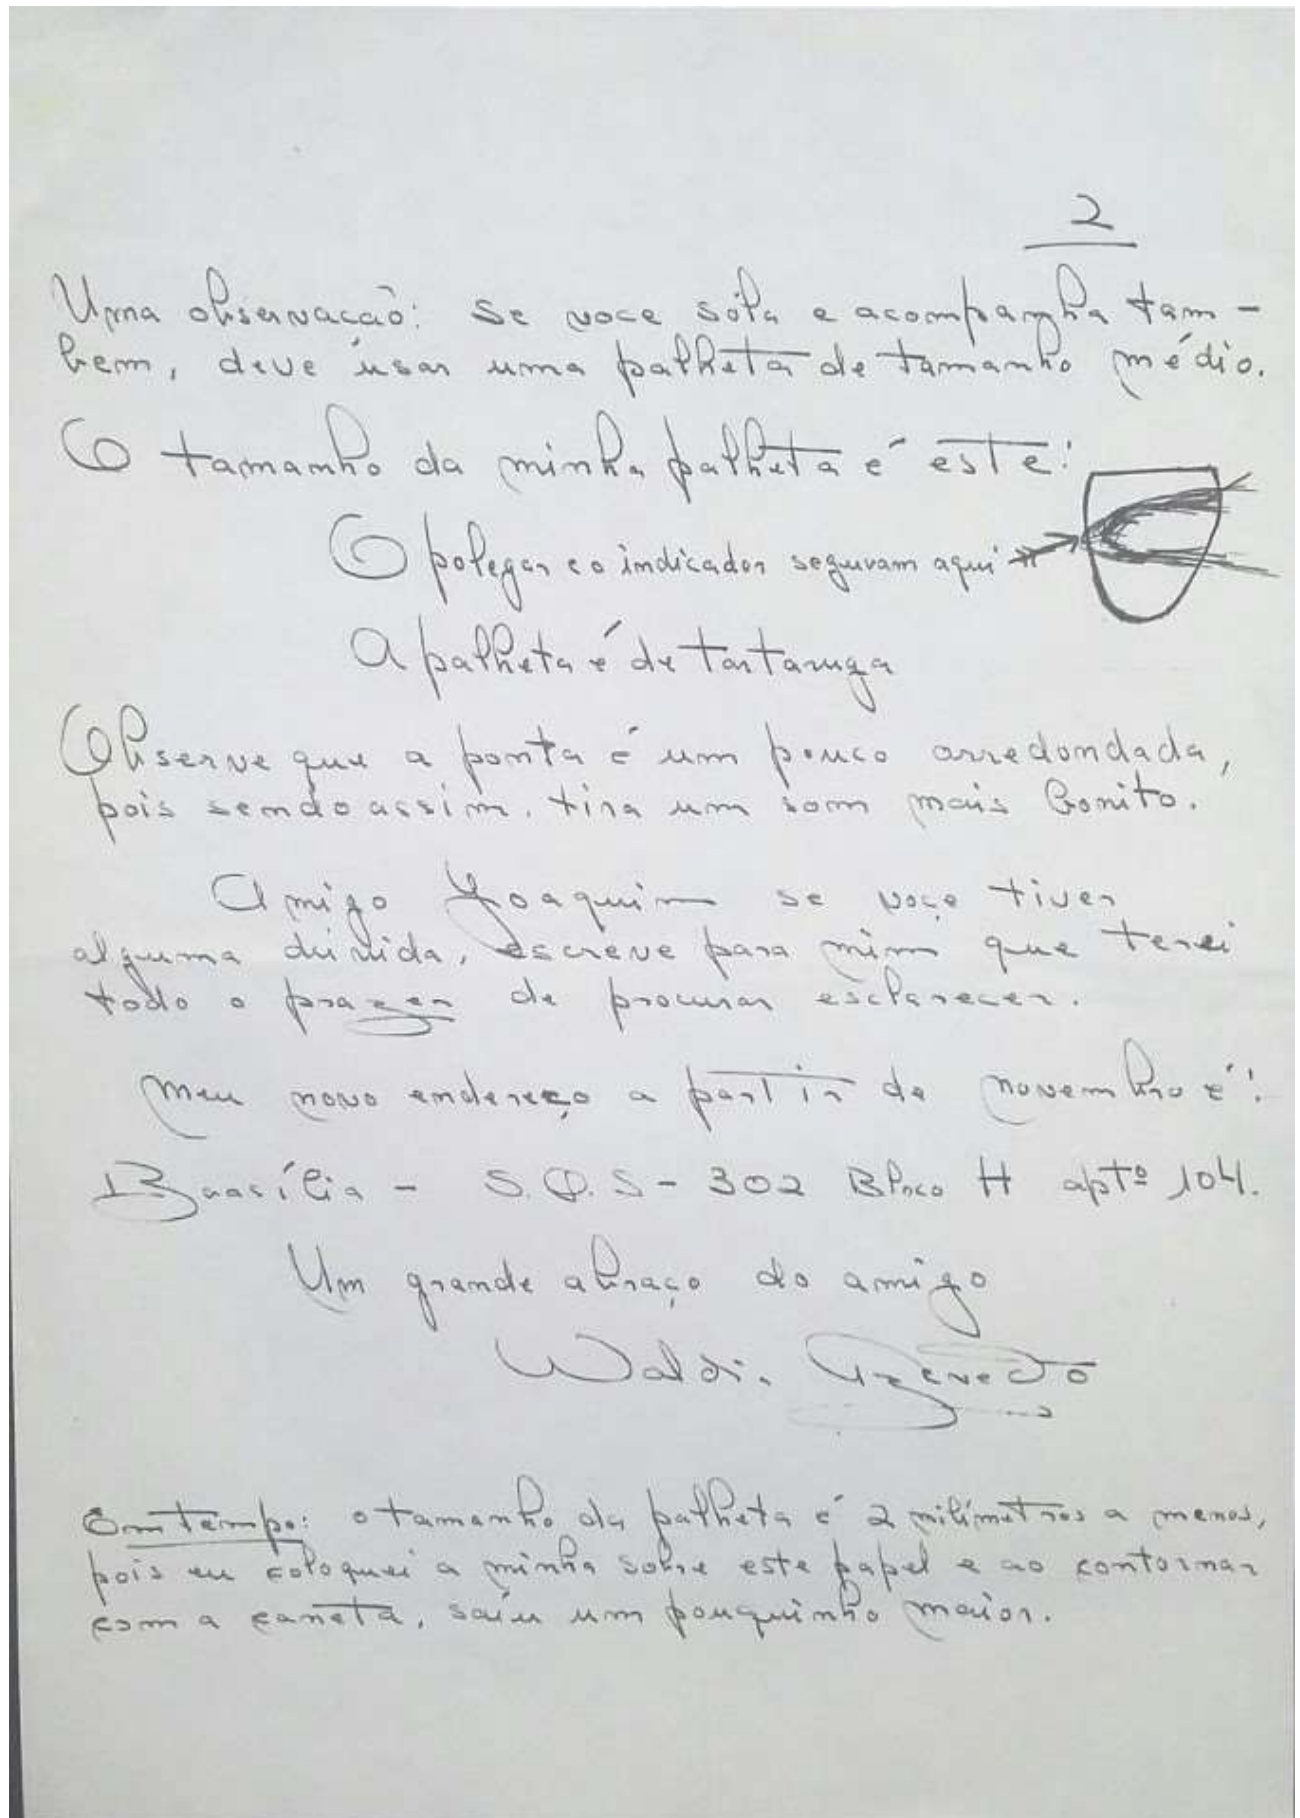 2
Uma observacaõ: se voce sóla e acompanha tam-
bem, deve úsar uma palheta de tamanho médio.
O tamanho da minha palheta é este:
O polegar e o indicador seguram aqui
A palheta é de tartaruga
Observe que a ponta é um pouco arredondada,
pois sendo assim, tira um som mais bonito.
Amigo Joaquim se voçe tiver
alguma dúvida, escreve para mim que terei
todo o prazer de procurar esclarecer.
Meu novo endereço a partir de novembro é:
Brasília - S.Q.S - 302 Bloco H aptº 104.
Um grande abraço do amigo
Waldir Azevedo
Em tempo: o tamanho da palheta é 2 milímetros a menos,
pois eu coloquei a minha sobre este papel e ao contornar
com a caneta, saíu um pouquinho maior.